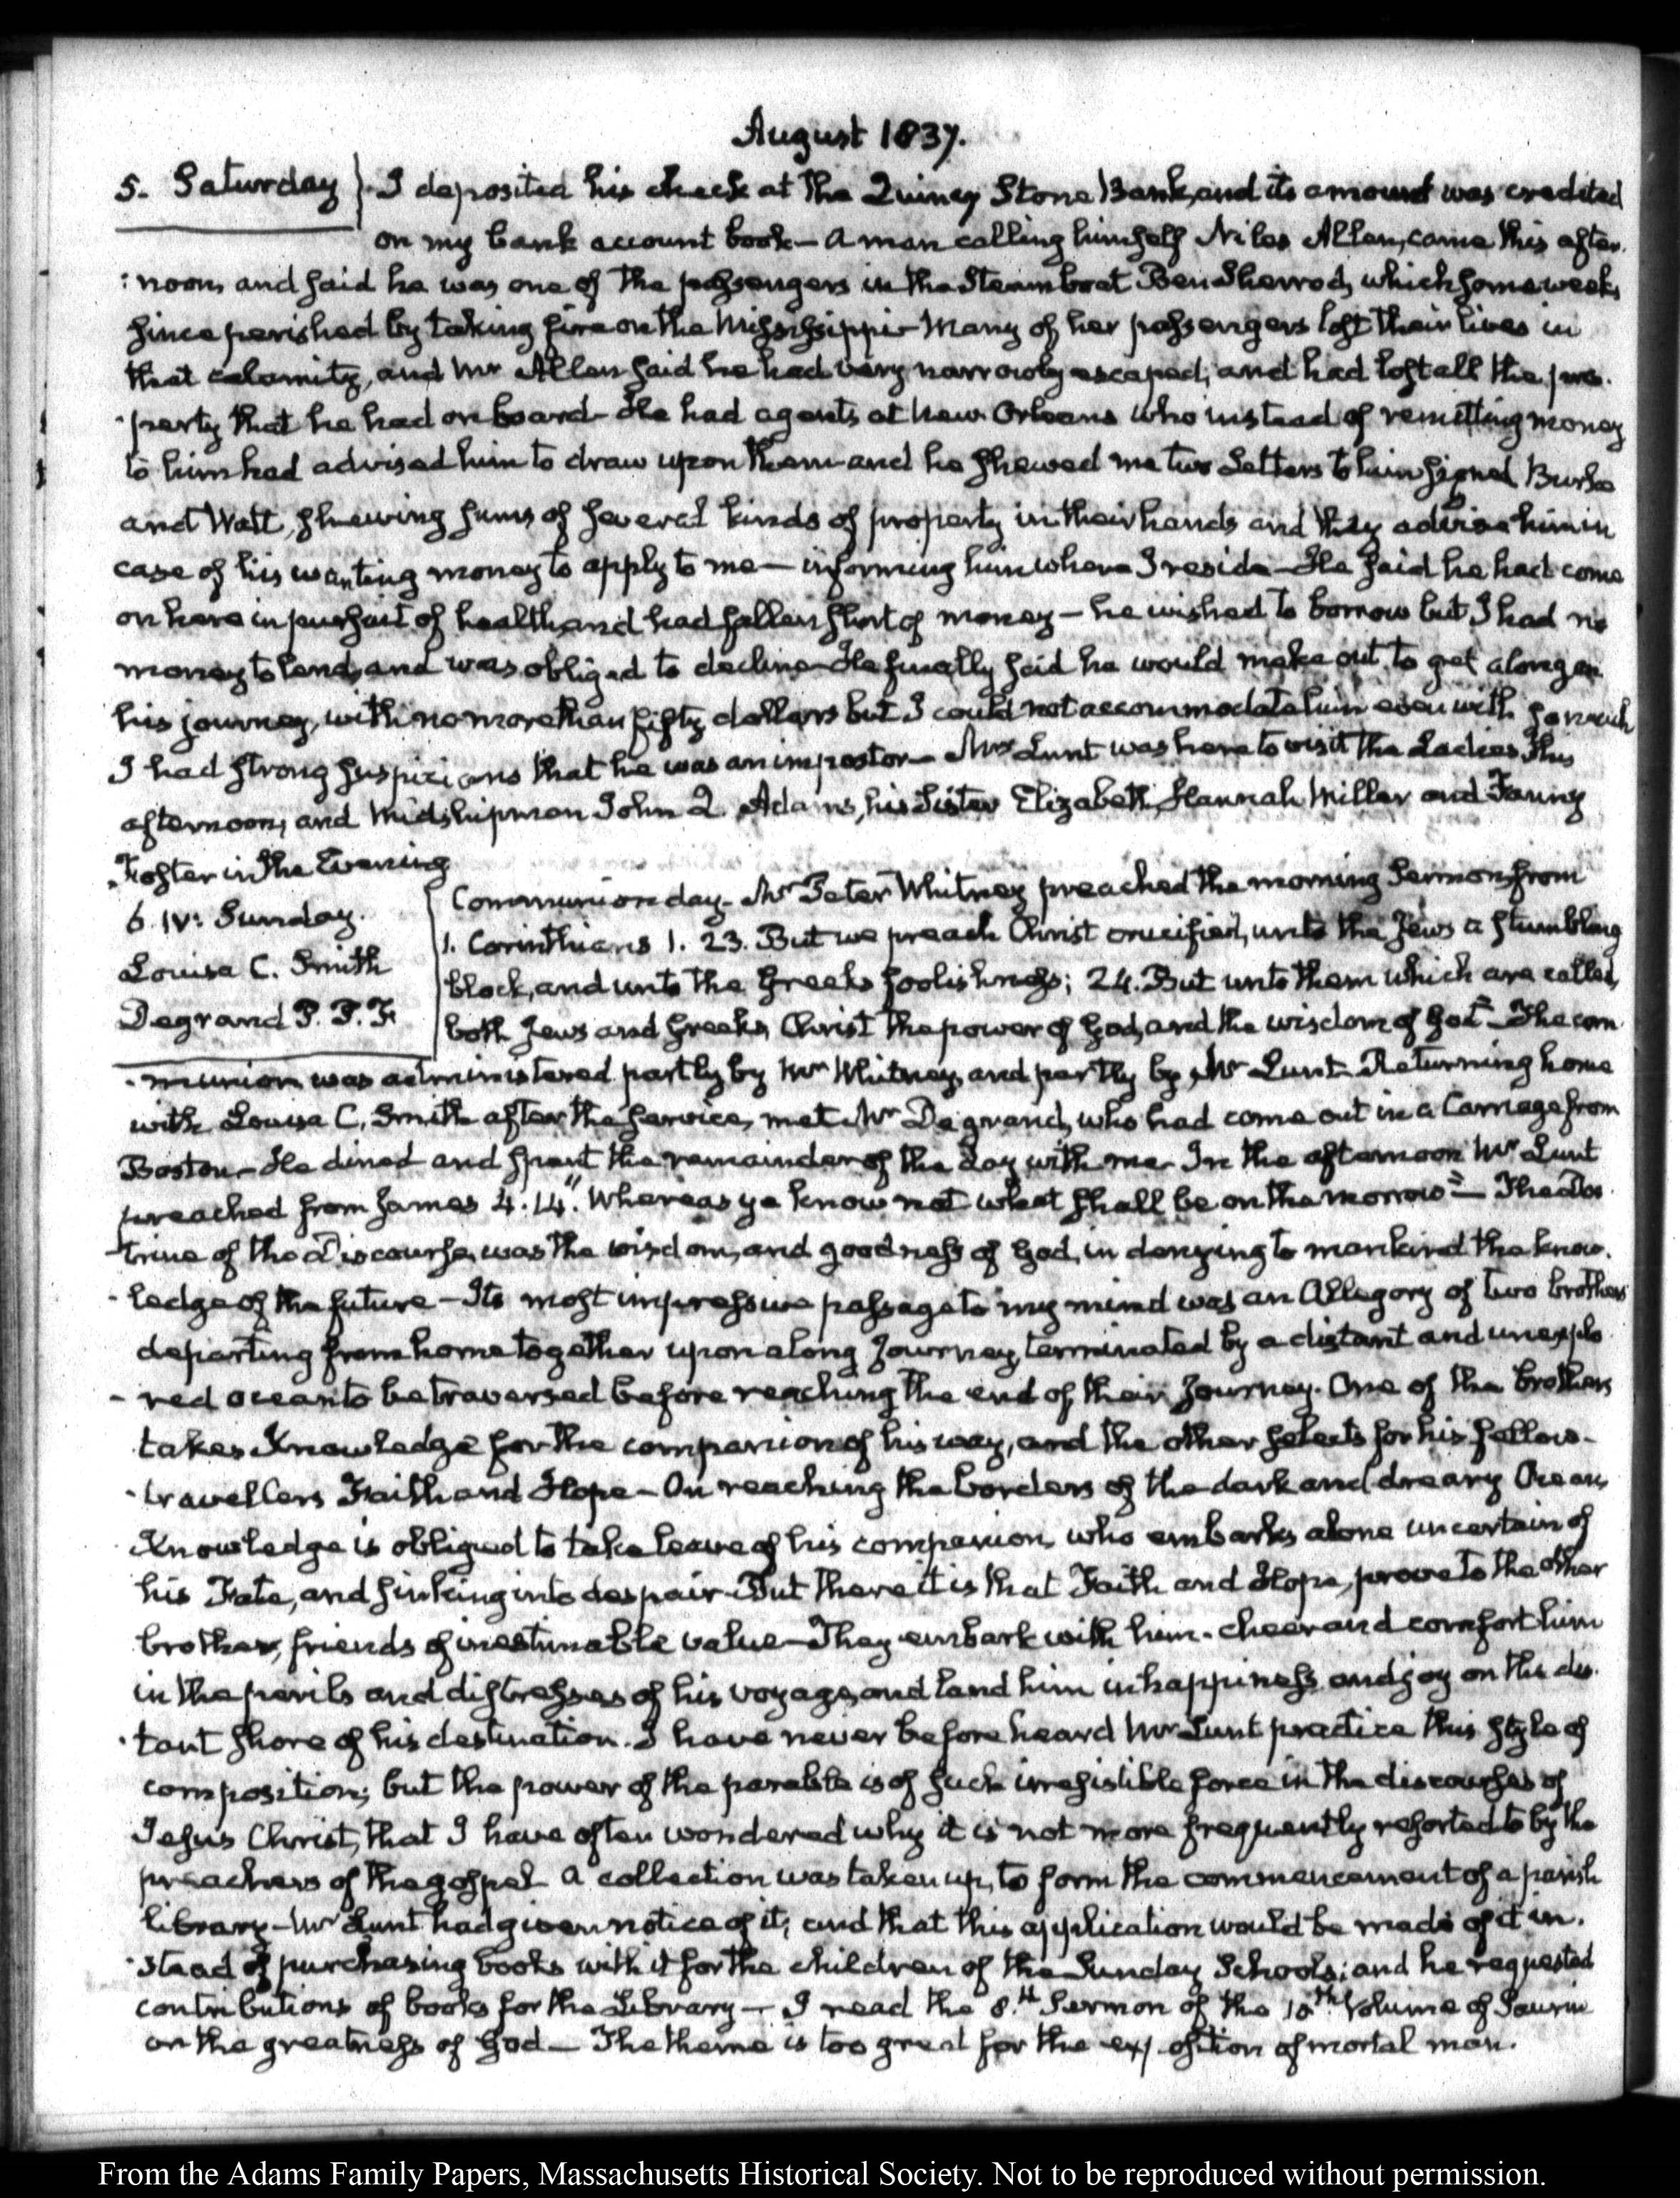 August 1837.
5. Saturday } I deposited his check at the Quincy Stone Bank, and its amount was credited
on my bank account book — A man calling himself Niles Allen, came this after-
:noon, and said he was one of the passengers in the Steamboat Ben Sherrod, which some weeks
since perished by taking fire on the Mississippi — Many of her passengers lost their lives in
that calamity, and Mr Allen said he had very narrowly escaped, and had lost all the pro-
-perty that he had on board — He had agents at New Orleans who instead of remitting money
to him had advised him to draw upon them and he shewed me two Letters to him signed Burke
and Watt, shewing sums of several kinds of property in their hands and they advise him in
case of his wanting money to apply to me — informing him where I reside — He said he had come
on here in pursuit of health, and had fallen short of money — he wished to borrow but I had no
money to lend, and was obliged to decline — He finally said he would make out, to get along on
his journey, with no more than fifty dollars but I could not accommodate him even with so much
I had strong suspicions that he was an impostor — Mrs Lunt was here to visit the Ladies this
afternoon, and Midshipman John Q. Adams, his Sister Elizabeth, Hannah Miller and Fanny
Foster in the Evening
6. IV: Sunday.
Louisa C. Smith
Degrand P. P. F.
Communion day — Mr Peter Whitney preached the morning Sermon, from
1. Corinthians 1. 23. But we preach Christ crucified, unto the Jews a stumbling
block, and unto the Greeks foolishness; 24. But unto them which are called,
both Jews and Greeks, Christ the power of God, and the wisdom of God" — The com-
-munion was administered partly by Mr Whitney, and partly by Mr Lunt — Returning home
with Louisa C. Smith after the service, met Mr Degrand, who had come out in a Carriage from
Boston — He dined and spent the remainder of the day with me — In the afternoon Mr Lunt
preached from James 4. 14. "Whereas ye know not what shall be on the morrow" — The doc-
-trine of the Discourse, was the wisdom, and goodness of God, in denying to mankind the know-
-ledge of the future — Its most impressive passage to my mind was an Allegory of two brothers
departing from home together upon a long Journey, terminated by a distant and unexplo-
-red ocean to be traversed before reaching the end of their Journey. One of the brothers
takes Knowledge for the companion of his way, and the other selects for his fellow-
-travellers Faith and Hope — On reaching the borders of the dark and dreary Ocean,
Knowledge is obliged to take leave of his companion, who embarks alone uncertain of
his Fate, and sinking into despair — But there it is that Faith and Hope, prove to the other
brother, friends of inestimable value — They embark with him - cheer and comfort him
in the perils and distresses of his voyage, and land him in happiness and joy on the dis-
-tant shore of his destination. I have never before heard Mr Lunt practice this style of
composition; but the power of the parable is of such irresistible force in the discourses of
Jesus Christ, that I have often wondered why it is not more frequently resorted to by the
preachers of the gospel — A collection was taken up, to form the commencement of a parish
library — Mr Lunt had given notice of it, and that this application would be made of it in-
-stead of purchasing books with it for the children of the Sunday Schools; and he requested
contributions of books for the Library — I read the 8th Sermon of the 10th Volume of Saurin
on the greatness of God — The theme is too great for the exposition of mortal man.
From the Adams Family Papers, Massachusetts Historical Society. Not to be reproduced without permission.